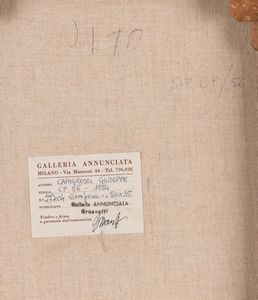 J 170
SUP. CP/56
GALLERIA ANNUNCIATA
MILANO - Via Manzoni 44 - Tel. 796,026
AUTORE CAPOGROSSI GIUSEPPE
TITOLO CP 56 - 1954
tempera 50x35
PUBBLICATO Galleria ANNUNCIATA
Grossetti
Timbro e firma
a garanzia dell'autenticità